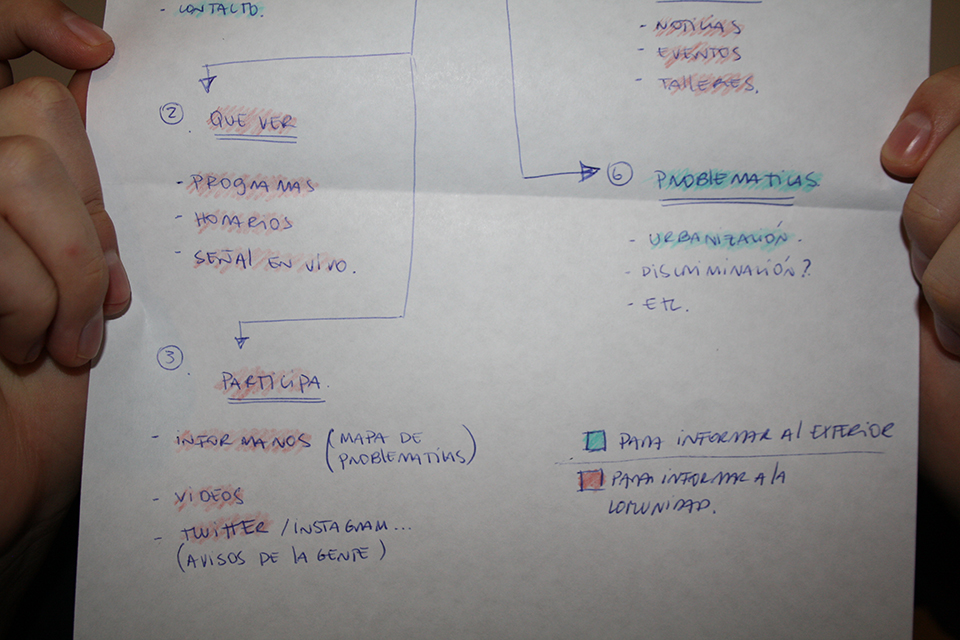 - CONTACTO.
② QUE VER
- PROGRAMAS
- HORARIOS
- SEÑAL EN VIVO.
③ PARTICIPA.
- INFORMANOS (MAPA DE
PROBLEMATICAS)
- VIDEOS
- TWITTER / INSTAGRAM...
(AVISOS DE LA GENTE)
- NOTICIAS
- EVENTOS
- TALLERES.
⑥ PROBLEMATICAS
- URBANIZACIÓN.
- DISCRIMINACIÓN?
- ETC.
PARA INFORMAR AL EXTERIOR
PARA INFORMAR A LA
COMUNIDAD.